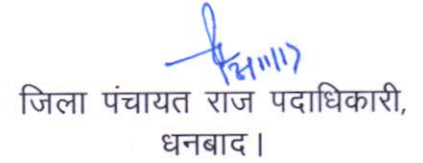 जिला पंचायत राज पदाधिकारी,
धनबाद।